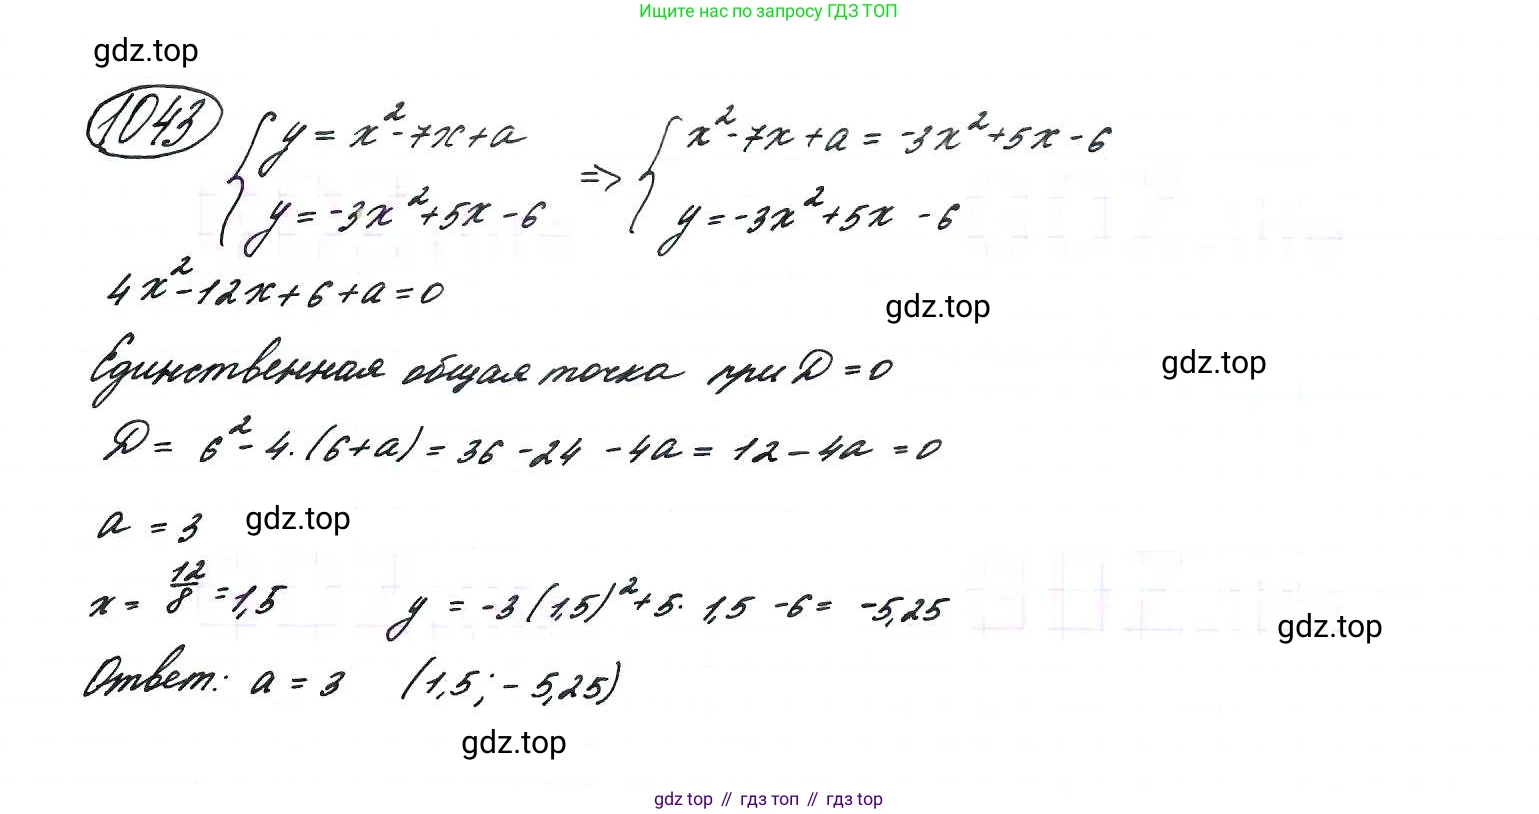 Ищите нас по запросу ГДЗ ТОП
gdz.top
1043 { y = x² - 7x + a => { x² - 7x + a = -3x² + 5x - 6
y = -3x² + 5x - 6 y = -3x² + 5x - 6
4x² - 12x + 6 + a = 0
gdz.top
Единственная общая точка при D = 0
gdz.top
D = 6² - 4·(6+a) = 36 - 24 - 4a = 12 - 4a = 0
a = 3 gdz.top
x = 12/8 = 1,5 y = -3(1,5)² + 5·1,5 - 6 = -5,25
gdz.top
Ответ: a = 3 (1,5; -5,25)
gdz.top
gdz top // гдз топ // гдз top